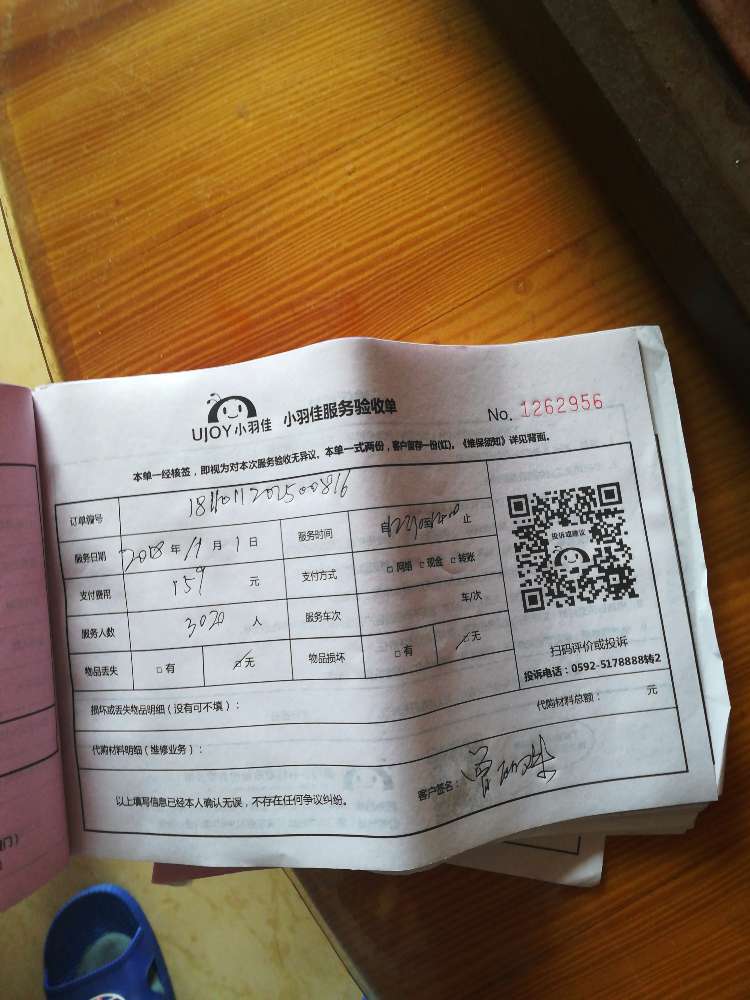 UJOY小羽佳 小羽佳服务验收单 No. 1262956
本单一经核签，即视为对本次服务验收无异议。本单一式两份，客户留存一份(红)。《维保须知》详见背面。
订单编号
服务日期 2018 年 11 月 1 日 服务时间 自 至 止
支付费用 159 元 支付方式 □网络 □现金 □转账
服务人数 3020 人 服务车次 车/次
物品丢失 □有 □无 物品损坏 □有 □无
投诉或建议
扫码评价或投诉
投诉电话：0592-5178888转2
损坏或丢失物品明细（没有可不填）：
代购材料明细（维修业务）： 代购材料总额： 元
以上填写信息已经本人确认无误，不存在任何争议纠纷。 客户签名：